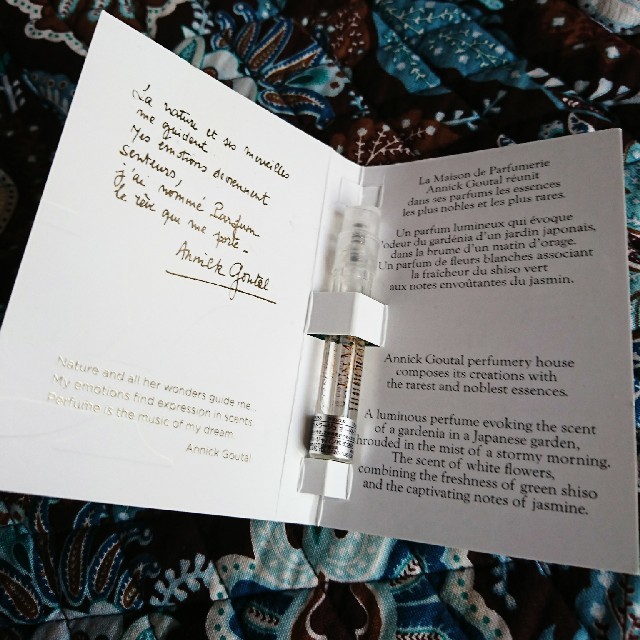 La nature et ses merveilles
me guident
Mes émotions deviennent
senteurs,
j'ai nommé Parfum
le rêve que me porte
Annick Goutal
Nature and all her wonders guide me...
My emotions find expression in scents
Perfume is the music of my dream
Annick Goutal
La Maison de Parfumerie
Annick Goutal réunit
dans ses parfums les essences
les plus nobles et les plus rares.
Un parfum lumineux qui évoque
l'odeur du gardenia d'un jardin japonais,
dans la brume d'un matin d'orage.
Un parfum de fleurs blanches associant
la fraîcheur du shiso vert
aux notes envoûtantes du jasmin.
Annick Goutal perfumery house
composes its creations with
the rarest and noblest essences.
A luminous perfume evoking the scent
of a gardenia in a Japanese garden,
shrouded in the mist of a stormy morning.
The scent of white flowers,
combining the freshness of green shiso
and the captivating notes of jasmine.